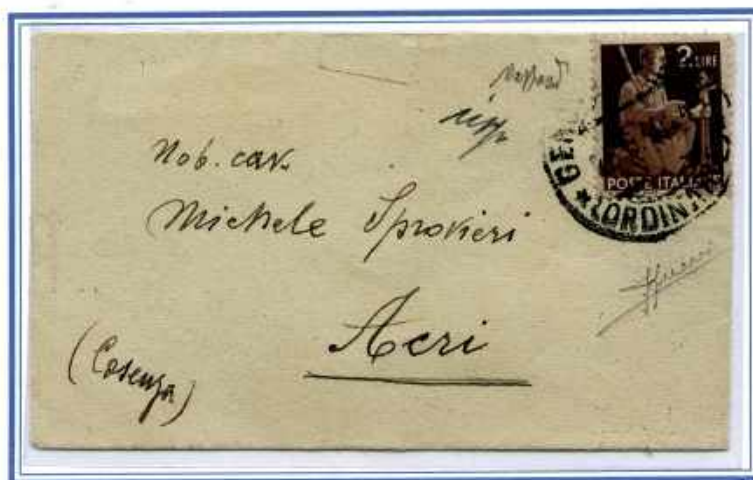 2. LIRE
POSTE ITALIANE
GEN
(ORDIN
Nob. cav.
Michele Sprovieri
Acri
(Cosenza)